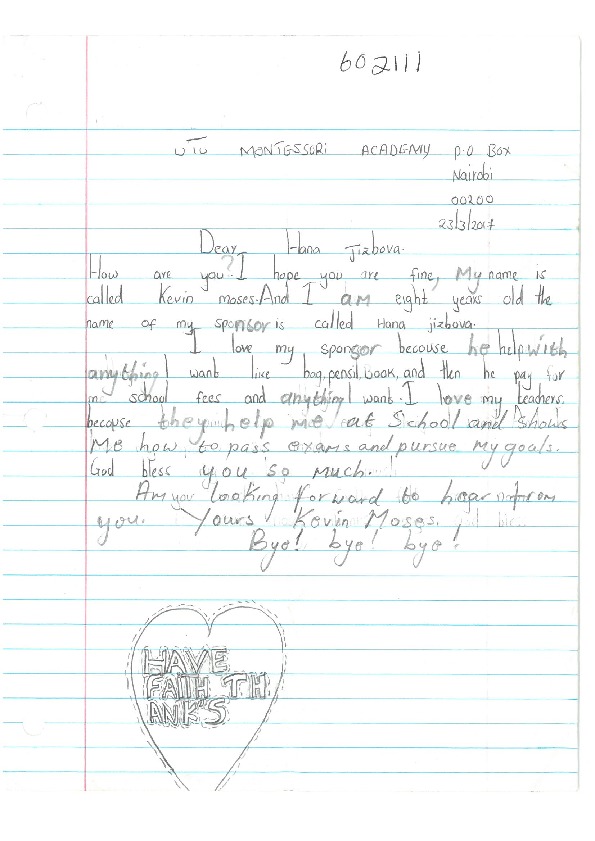 602111
UTU MONTESSORi ACADEMY P.O Box
Nairobi
00200
23/3/2017
Dear Hana Jizbova.
How are you? I hope you are fine, My name is
called Kevin moses. And I am eight years old the
name of my sponsor is called Hana jizbova.
I love my sponsor because he help with
anything I want like bag, pencil, book, and then he pay for
me school fees and anything I want. I love my teachers.
because they help me at School and shows
Me how to pass exams and pursue My goals.
God bless you so much.
Am you looking forward to hear from
you. Yours Kevin Moses.
Bye! bye! bye!
HAVE
FAITH TH
ANK'S